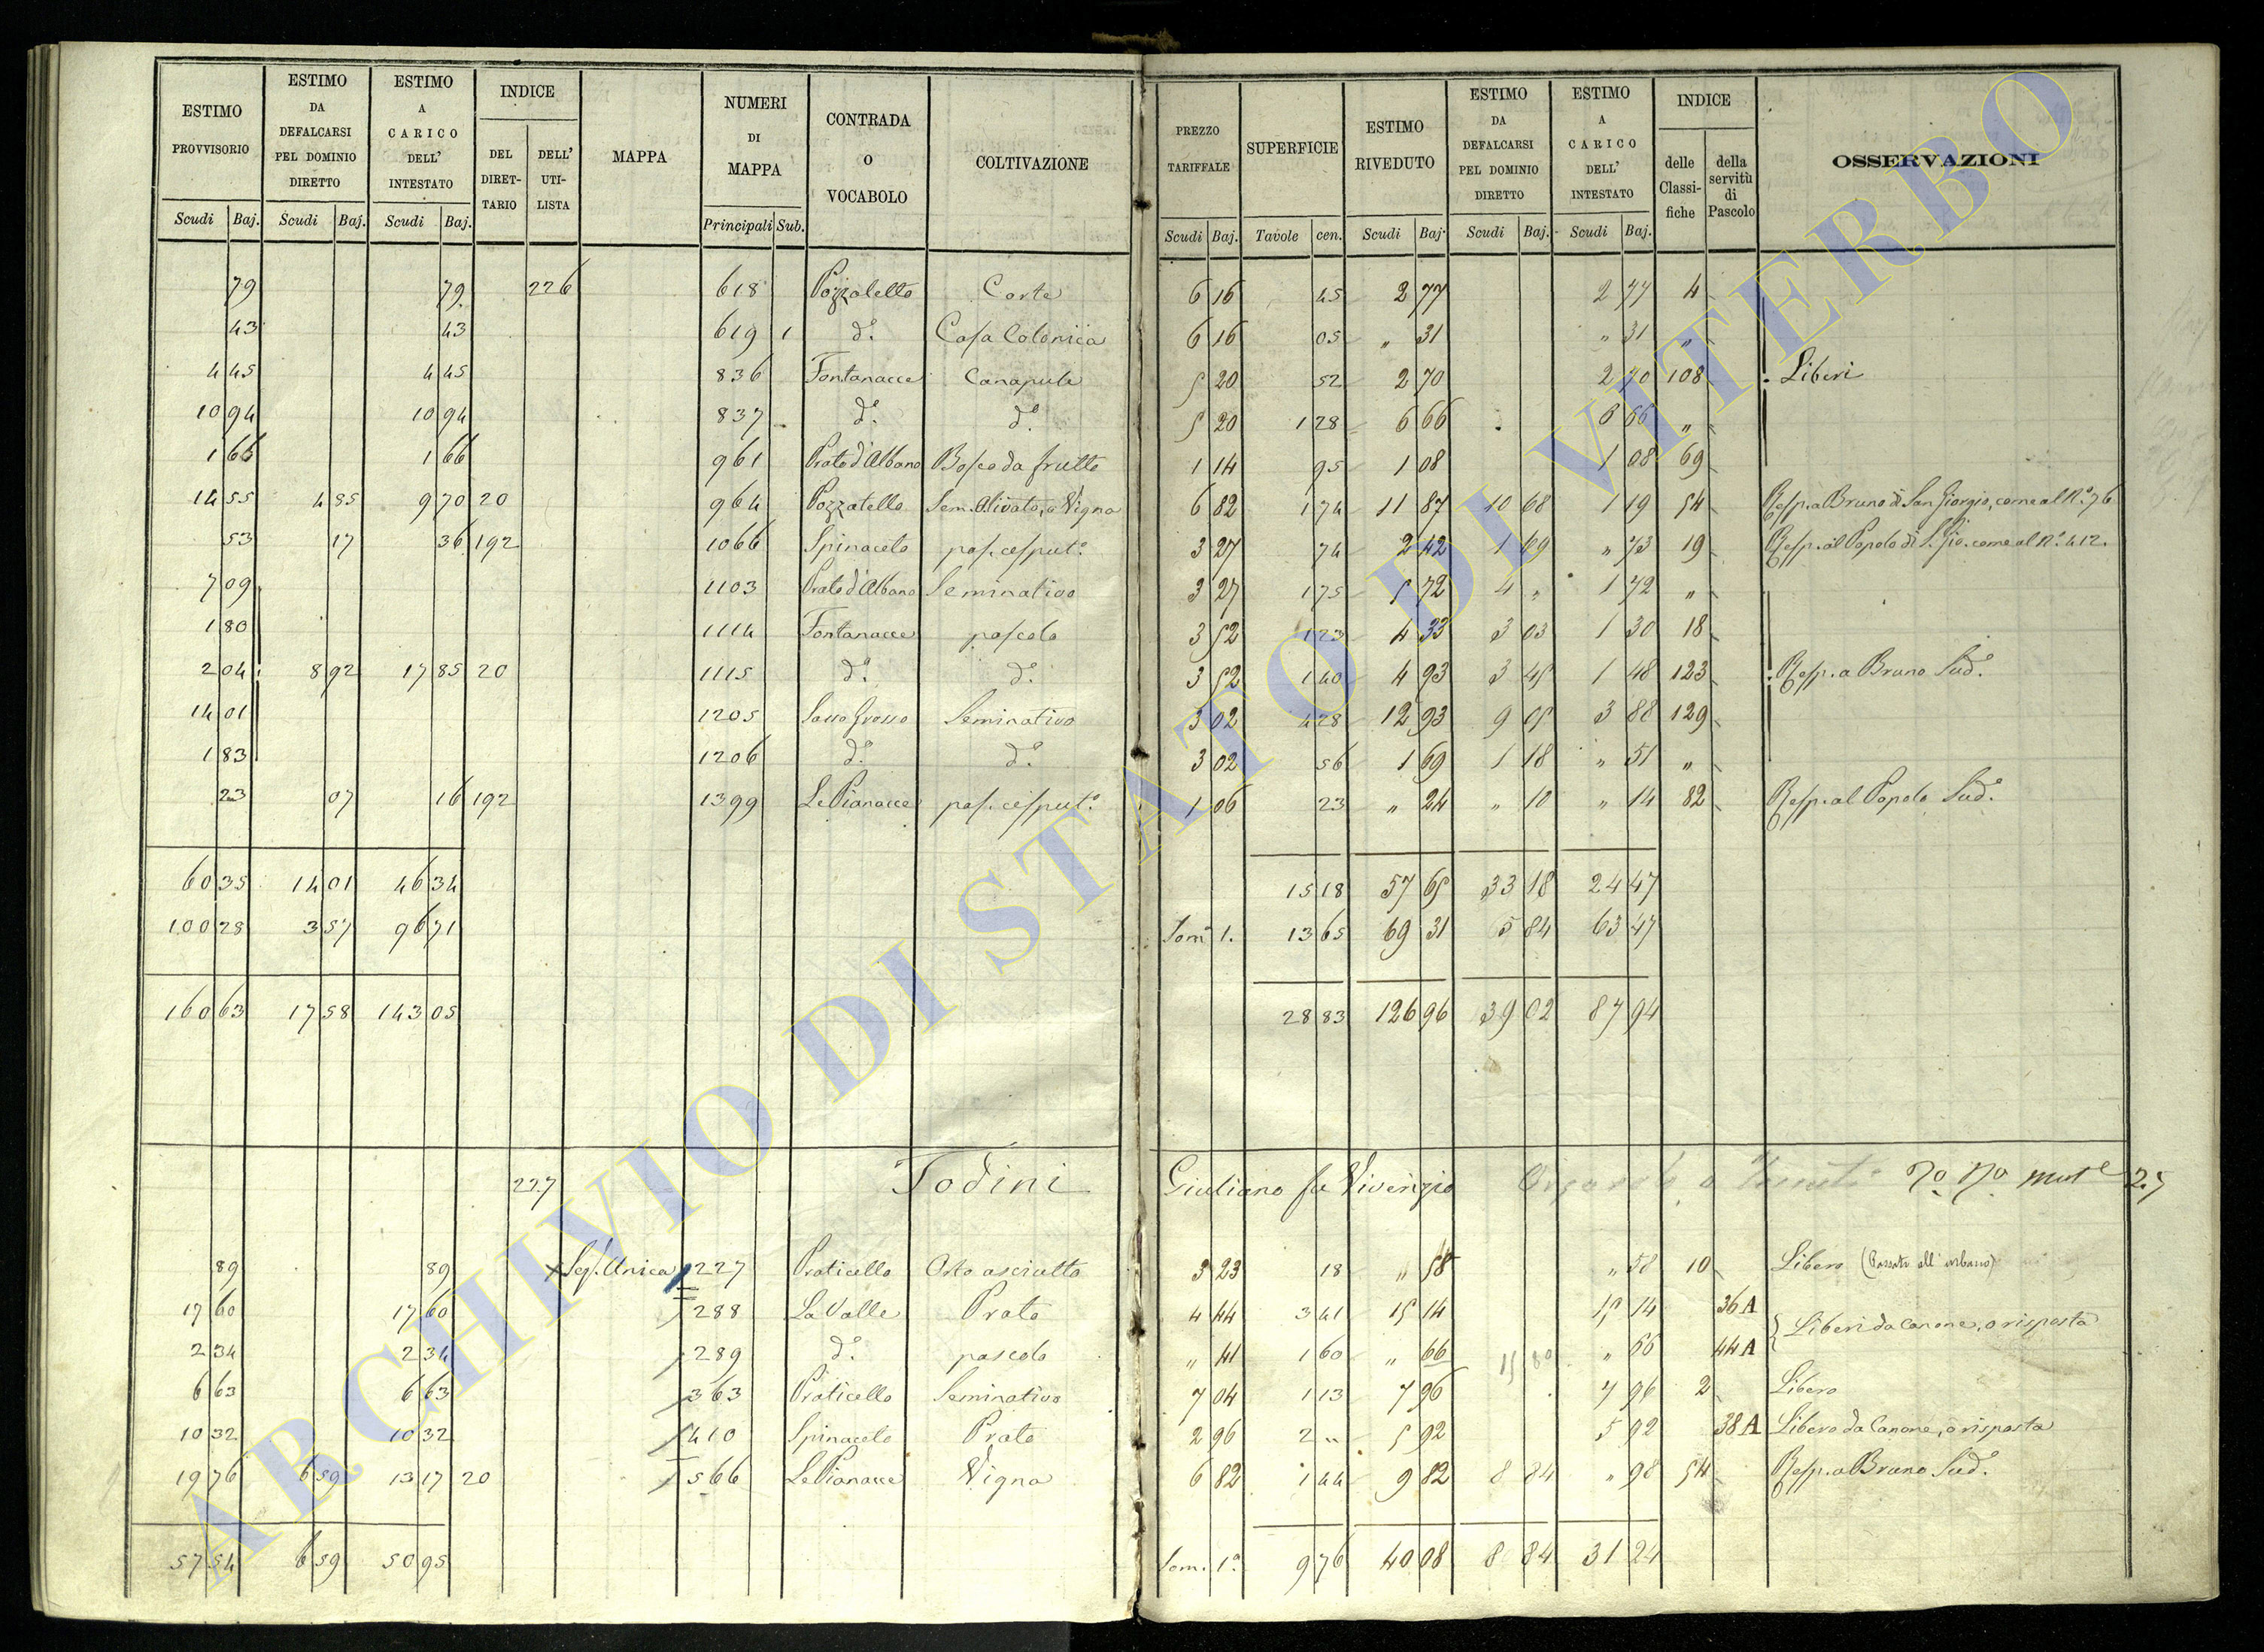 ESTIMO PROVVISORIO Scudi Baj. ESTIMO DA DEFALCARSI PEL DOMINIO DIRETTO Scudi Baj. ESTIMO A CARICO DELL' INTESTATO Scudi Baj. INDICE DEL DIRET-TARIO DELL' UTI-LISTA MAPPA NUMERI DI MAPPA Principali Sub. CONTRADA O VOCABOLO COLTIVAZIONE PREZZO TARIFFALE Scudi Baj. SUPERFICIE Tavole cen. ESTIMO RIVEDUTO Scudi Baj. ESTIMO DA DEFALCARSI PEL DOMINIO DIRETTO Scudi Baj. ESTIMO A CARICO DELL' INTESTATO Scudi Baj. INDICE delle Classi-fiche della servitù di Pascolo OSSERVAZIONI
79 79 226 618 Pozzatello Corte 6 16 45 2 77 2 77 4
43 43 619 1 d.º Casa Colonica 6 16 05 „ 31 „ 31 „
4 45 4 45 836 Fontanacce Canapule 5 20 52 2 70 2 70 108 Liberi
10 94 10 94 837 d.º d.º 5 20 1 28 6 66 6 66 „
1 66 1 66 961 Prato d'Albano Bosco da frutto 1 14 95 1 08 1 08 69
14 55 4 85 9 70 20 964 Pozzatello Sem. Olivato, a Vigna 6 82 1 74 11 87 10 68 1 19 54 Resp. a Bruno di San Giorgio, come al N.º 76
53 17 36 192 1066 Spinaceto pas. cesput.º 3 27 74 2 42 1 69 „ 73 19 Resp. al Popolo di S. Gio. come al N.º 412.
7 09 1103 Prato d'Albano Seminativo 3 27 1 75 5 72 4 „ 1 72 „
1 80 1114 Fontanacce pascolo 3 52 1 23 4 33 3 03 1 30 18
2 04 8 92 17 85 20 1115 d.º d.º 3 52 1 40 4 93 3 45 1 48 123 Resp. a Bruno Sud.º
14 01 1205 Sasso Grosso Seminativo 3 02 4 28 12 93 9 05 3 88 129
1 83 1206 d.º d.º 3 02 56 1 69 1 18 „ 51 „
23 07 16 192 1399 Le Pianacce pas. cesput.º 1 06 23 „ 24 „ 10 „ 14 82 Resp. al Popolo Sud.º
60 35 14 01 46 34 15 18 57 65 33 18 24 47
100 28 3 57 96 71 Som.ª 1. 13 65 69 31 5 84 63 47
160 63 17 58 143 05 28 83 126 96 39 02 87 94
227 Todini Giuliano fu Viverizio 25
89 89 Sez. Unica 227 Praticello Orto asciutto 3 23 18 „ 58 „ 58 10 Libero (Passato all'urbano)
17 60 17 60 288 La Valle Prato 4 44 3 41 15 14 15 14 36 A Liberi da Canone, o risposta
2 34 2 34 289 d.º pascolo „ 41 1 60 „ 66 15 80 „ 66 44 A
6 63 6 63 363 Praticello Seminativo 7 04 1 13 7 96 7 96 2 Libero
10 32 10 32 410 Spinaceto Prato 2 96 2 „ 5 92 5 92 38 A Libero da Canone, o risposta
19 76 6 59 13 17 20 566 Le Pianacce Vigna 6 82 1 44 9 82 8 84 „ 98 54 Resp. a Bruno Sud.º
57 54 6 59 50 95 Som. 1.ª 9 76 40 08 8 84 31 24
ARCHIVIO DI STATO DI VITERBO